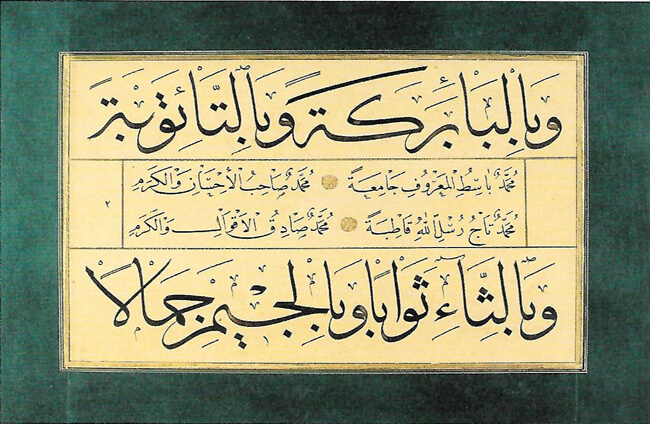 وَبِالْبَاءِ بَرَكَةً وَبِالتَّاءِ تَوْبَةً
مُحَمَّدٌ بَاسِطُ الْمَعْرُوفِ جَامِعَةً مُحَمَّدٌ صَاحِبُ الْأِحْسَانِ وَالْكَرَمِ
٢
مُحَمَّدٌ تَاجُ رُسْلِ اللهِ قَاطِبَةً مُحَمَّدٌ صَادِقُ الْأَقْوَالِ وَالْكَرَمِ
وَبِالثَّاءِ ثَوَابًا وَبِالْجِيمِ جَمَالًا